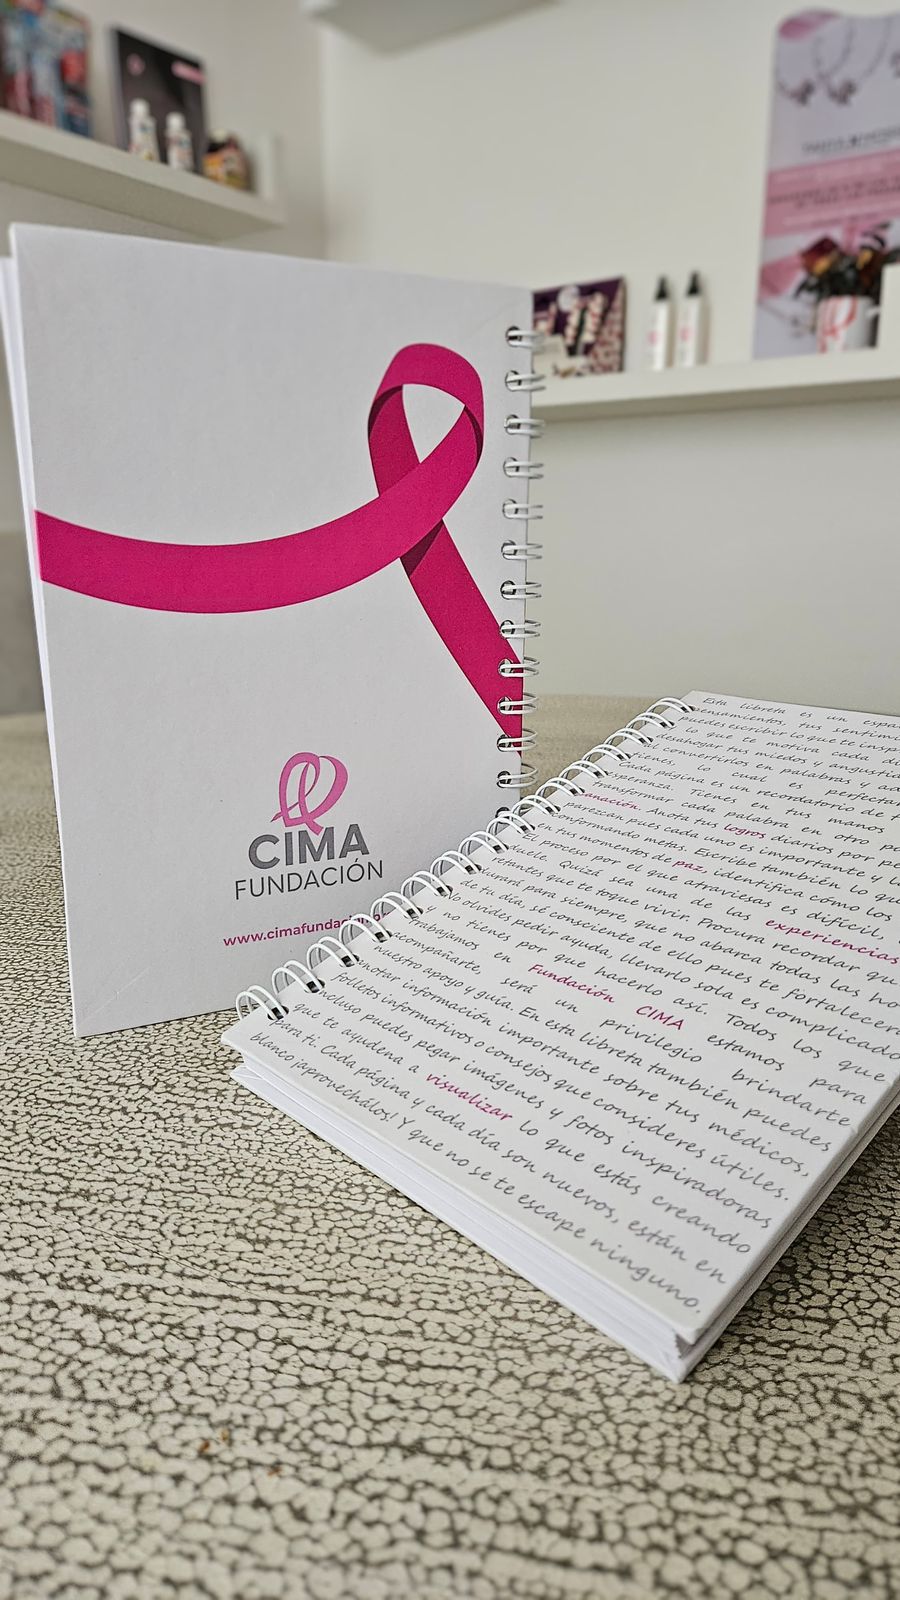 CIMA
FUNDACIÓN
Esta libreta es un
pensamientos, tus
puedes escribir lo que te
lo que te motiva cada
desahogar tus miedos y
al convertirlos en palabras y
tienes, lo cual es
Cada página es un recordatorio de
esperanza. Tienes en tus manos
transformar cada palabra en otro
Anota tus logros diarios por
parezcan pues cada uno es importante y
conformando metas. Escribe también lo
en tus momentos de paz, identifica cómo los
El proceso por el que atraviesas es difícil,
duele. Quizá sea una de las experiencias
retantes que te toque vivir. Procura recordar que
durará para siempre, que no abarca todas las
de tu día, sé consciente de ello pues te
No olvides pedir ayuda, llevarlo sola es complicado
no tienes por que hacerlo así. Todos los que
trabajamos en Fundación CIMA estamos para
acompañarte, será un privilegio brindarte
nuestro apoyo y guía. En esta libreta también puedes
anotar información importante sobre tus médicos,
folletos informativos o consejos que consideres útiles.
incluso puedes pegar imágenes y fotos inspiradoras
que te ayuden a visualizar lo que estás creando
para ti. Cada página y cada día son nuevos, están en
blanco ¡aprovechálos! Y que no se te escape ninguno.